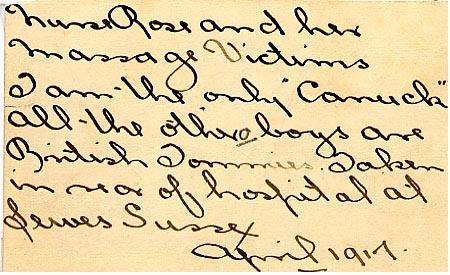 Nurse Rose and her
Massage Victims
I am the only "Canuck"
all the other boys are
British Tommies. Taken
in rear of hospital at
Lewes Sussex
April 1917.